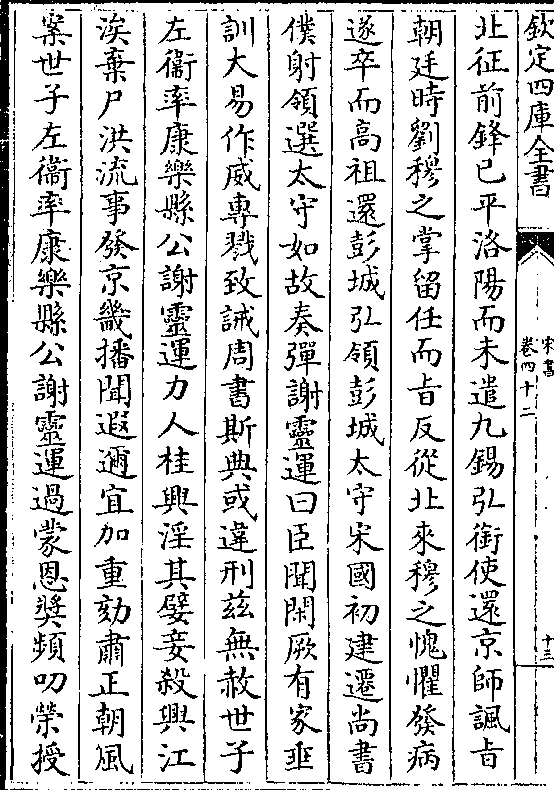 欽定四庫全書
宋書
卷四十二
十三
北征前鋒已平洛陽而未遣九錫弘銜使還京師諷旨
朝廷時劉穆之掌留任而旨反從北來穆之愧懼發病
遂卒而高祖還彭城弘領彭城太守宋國初建遷尚書
僕射領選太守如故奏彈謝靈運曰臣聞閑厥有家垂
訓大易作威專戮致誡周書斯典或違刑茲無赦世子
左衞率康樂縣公謝靈運力人桂興淫其嬖妾殺興江
涘棄尸洪流事發京畿播聞遐邇宜加重劾肅正朝風
案世子左衞率康樂縣公謝靈運過蒙恩奬頻叨榮授